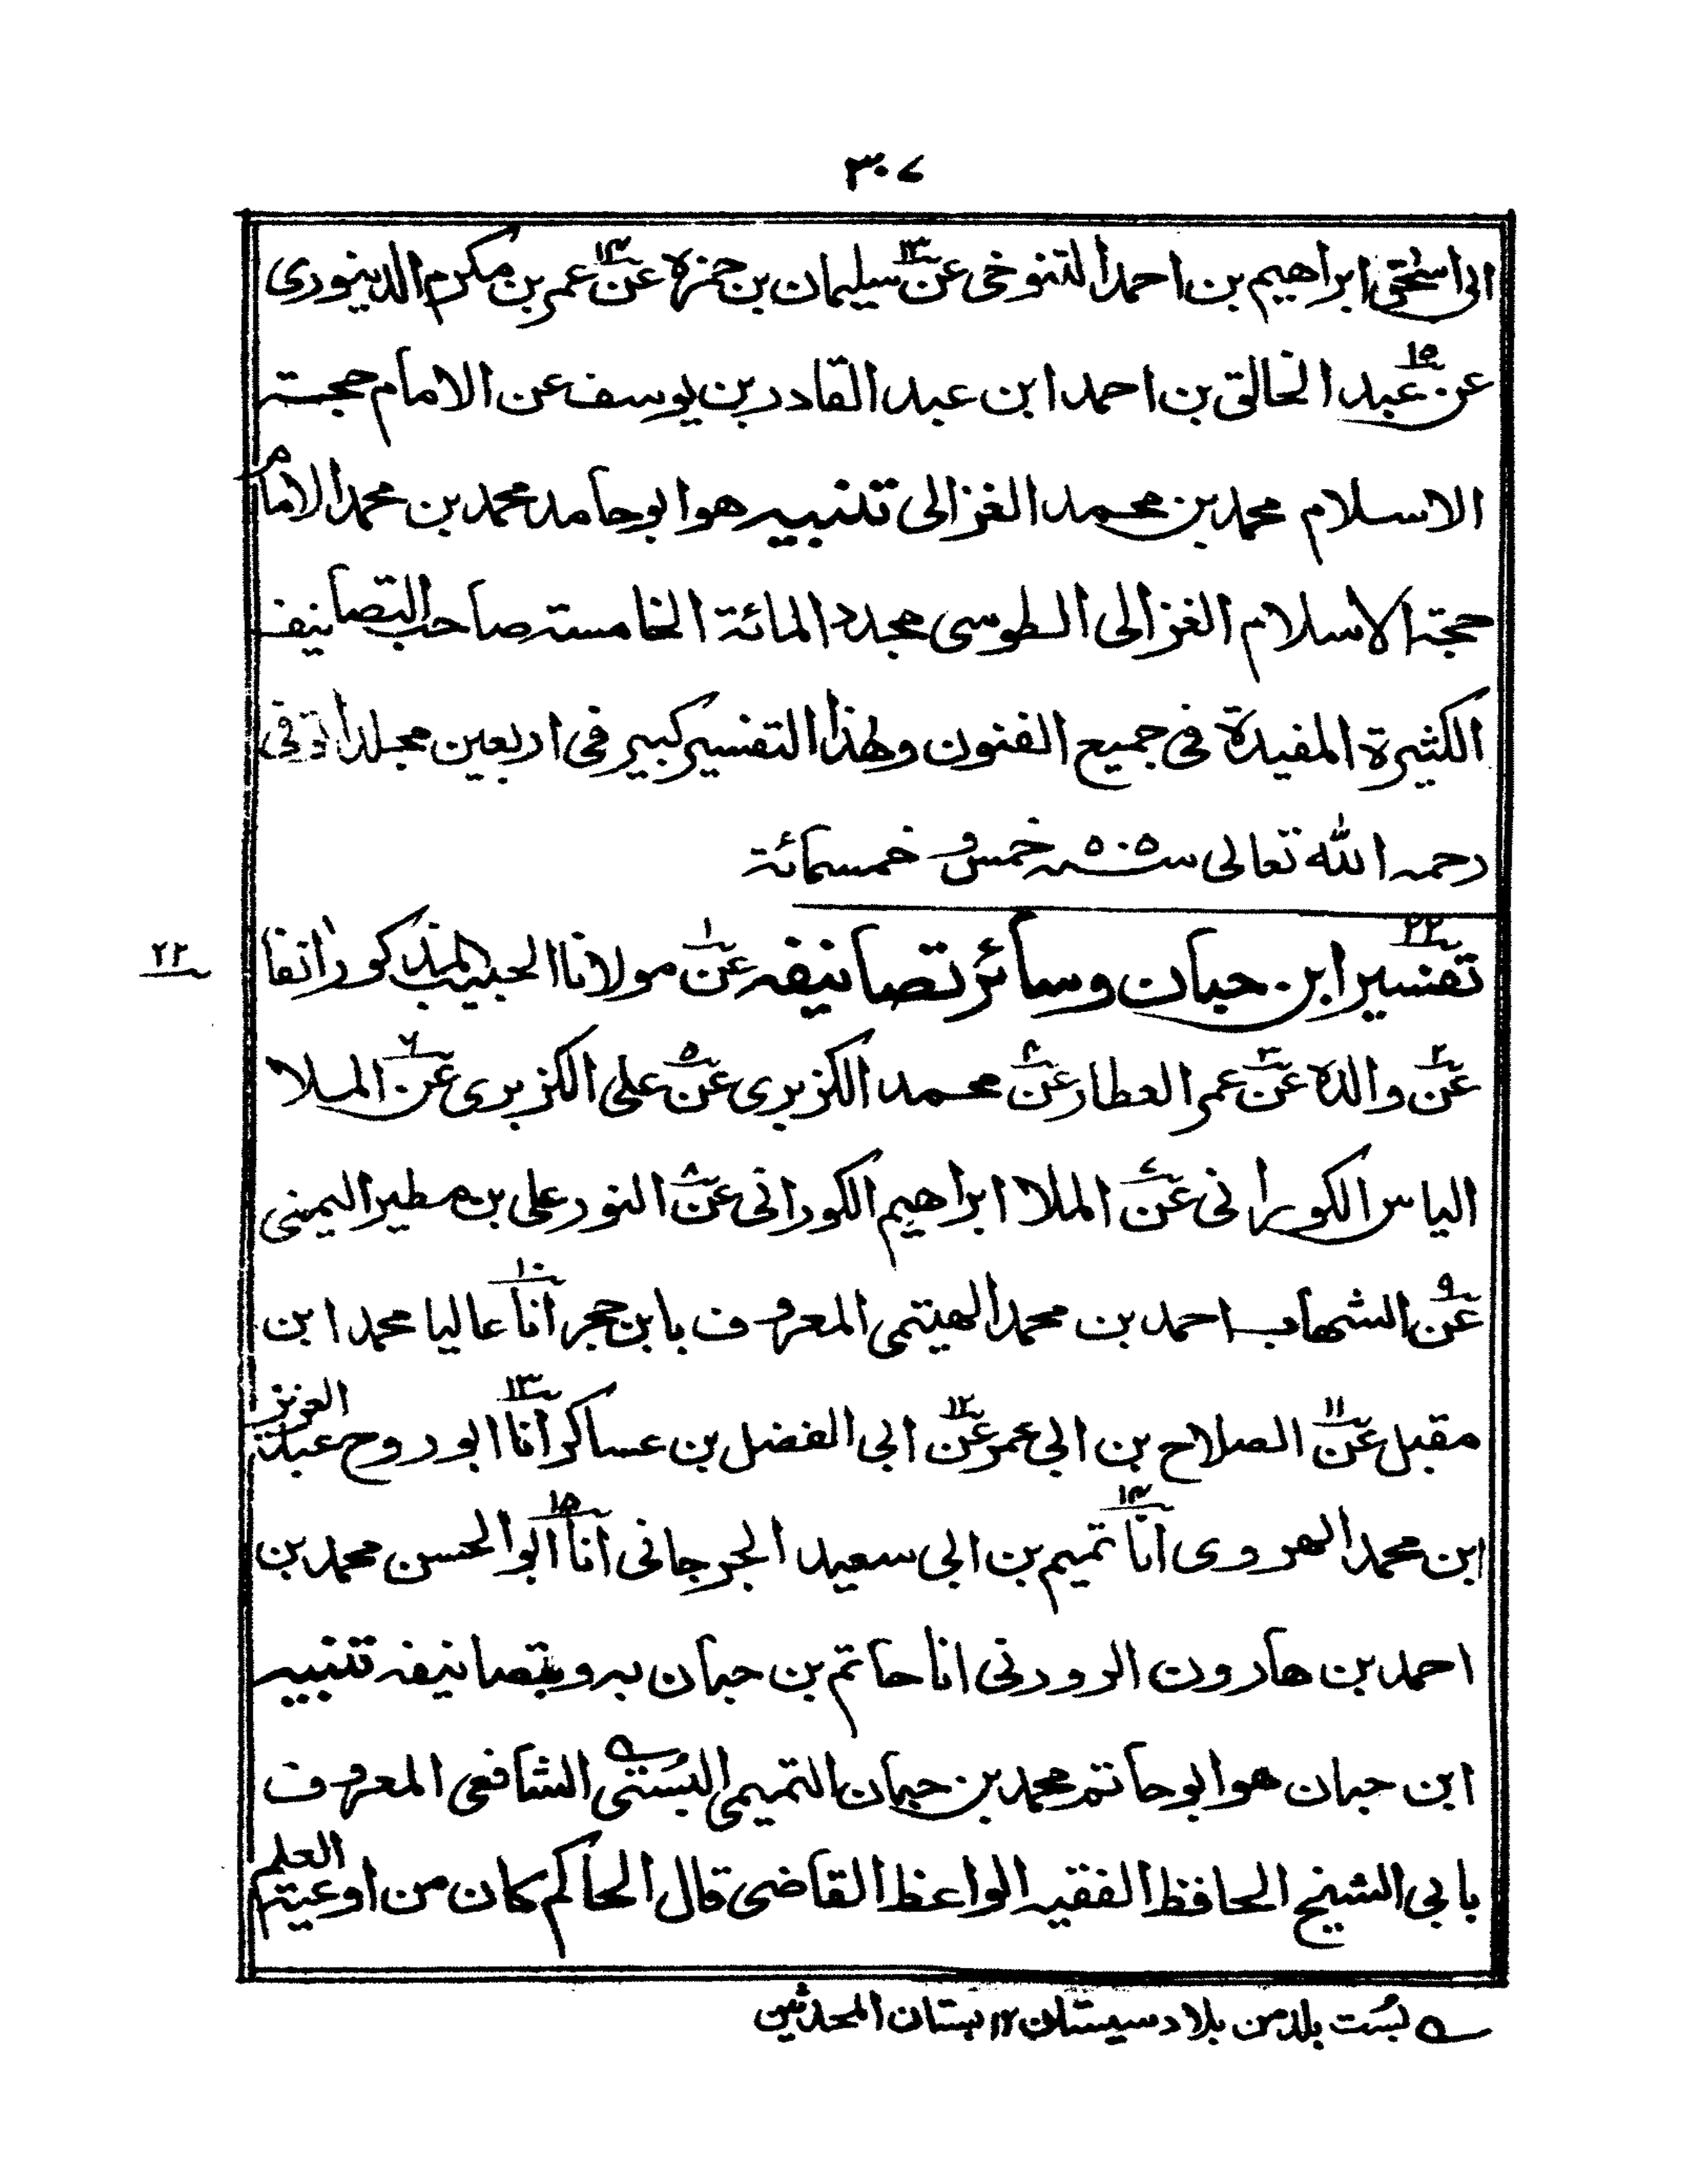 ٣٠٧
ابی اسحٰق ابراهیم بن احمد التنوخی عن۱۳ سلیمان بن حمزة عن۱۴ عمر بن مکرم الدینوری
عن۱۵ عبد الخالق بن احمد ابن عبد القادر بن یوسف عن الامام حجة
الاسلام محمد بن محمد الغزالی تنبیه هو ابو حامد محمد بن محمد الامام
حجة الاسلام الغزالی الطوسی مجدد المائة الخامسة صاحب التصانیف
الکثیرة المفیدة فی جمیع الفنون وهٰذا التفسیر کبیر فی اربعین مجلدا توفی
رحمه الله تعالی سنه ۵۰۵ خمس و خمسمائة
۲۲ تفسیر ابن حبان وسائر تصانیفه عن۱ مولانا الحبیب المذکور اٰنفا
۲۲
عن۲ والده عن۳ عمر العطار عن۴ محمد الکزبری عن۵ علی الکزبری عن۶ الملا
الیاس الکورانی عن۷ الملا ابراهیم الکورانی عن۸ النور علی بن مطیر الیمنی
عن۹ الشهاب احمد بن محمد الهیتمی المعروف بابن حجر انا۱۰ عالیا محمد ابن
مقبل عن۱۱ الصلاح بن ابی عمر عن۱۲ ابی الفضل بن عساکر انا۱۳ ابو روح عبد العزیز
ابن محمد الهروی انا۱۴ تمیم بن ابی سعید الجرجانی انا۱۵ ابو الحسن محمد بن
احمد بن هارون الرورنی انا حاتم بن حبان به وبتصانیفه تنبیه
ابن حبان هو ابو حاتم محمد بن حبان التمیمی البُستی ؎ الشافعی المعروف
بابی الشیخ الحافظ الفقیه الواعظ القاضی قال الحاکم کان من اوعیة العلم
؎ بُست بلد من بلاد سیستان ۱۲ بستان المحدثین